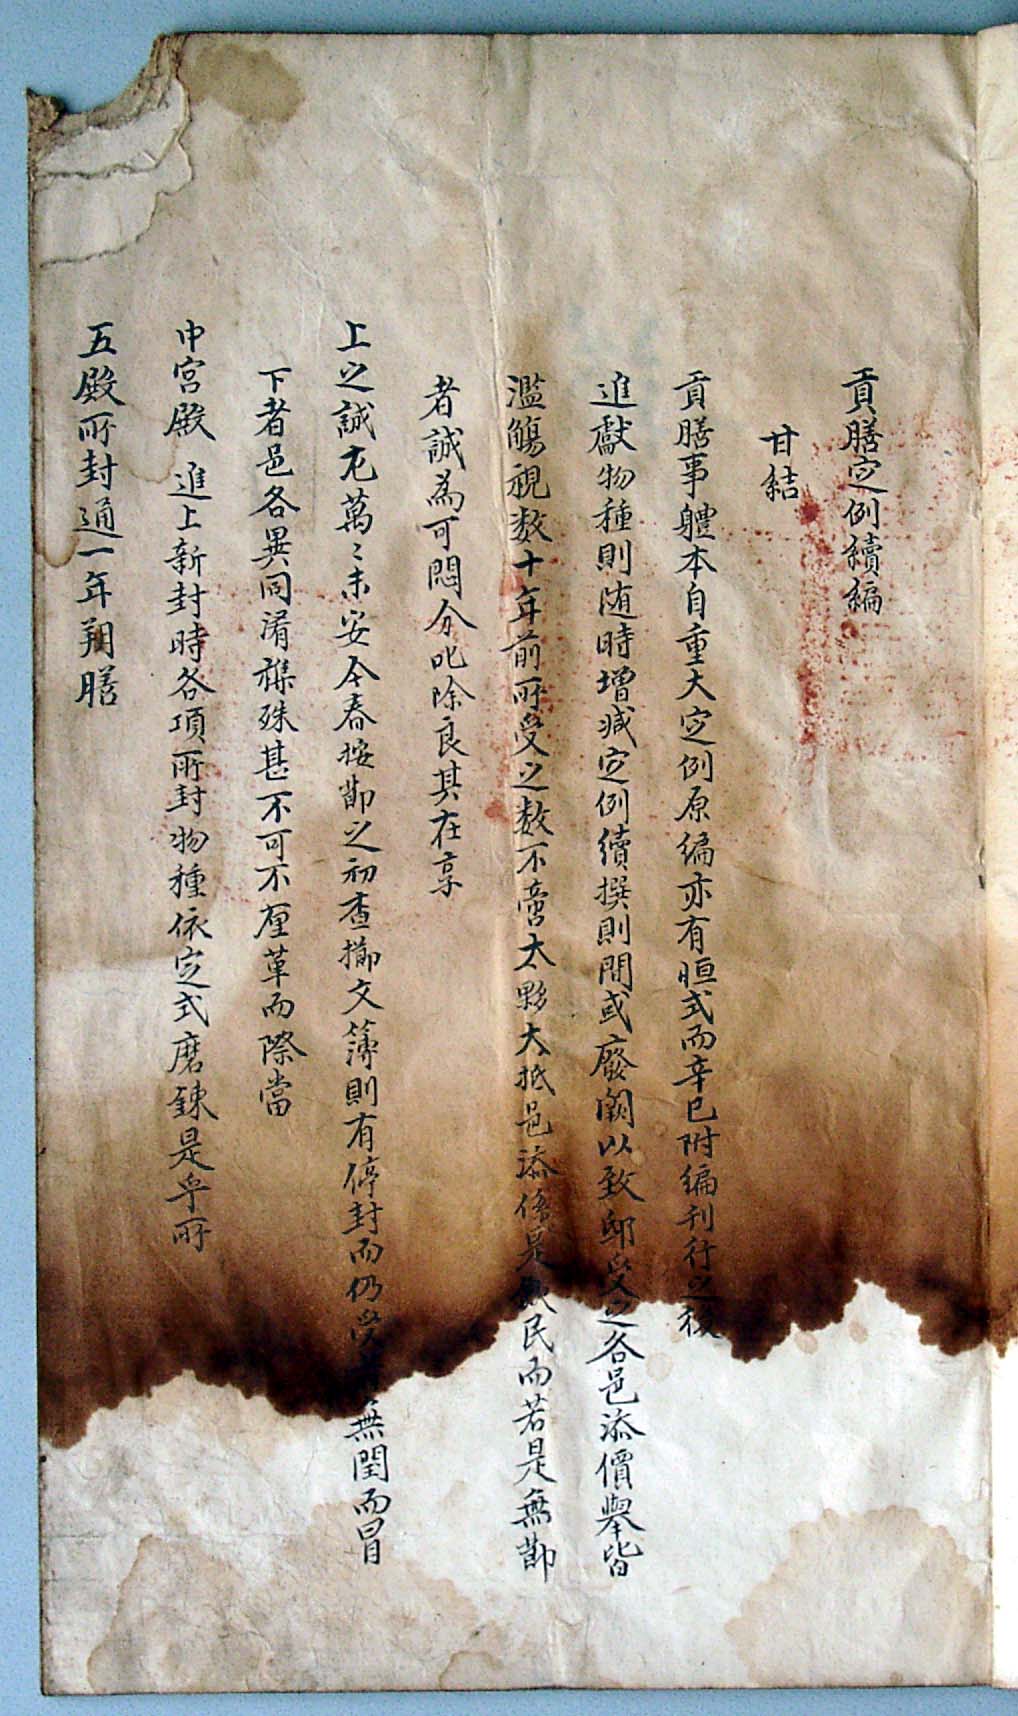 貢膳定例續編
甘結
貢膳事軆本自重大定例原編亦有恒式而辛巳附編刊行之後
進獻物種則随時增减定例續撰則間或廢闕以致邸受之各邑添價擧皆
濫觴視数十年前所受之数不啻太夥大抵邑添係是民而若是無節
者誠為可悶分叱除良其在享
上之誠尤萬〻未安今春按節之初查櫛文簿則有停封而仍受無閏而冒
下者邑各異同淆襍殊甚不可不厘革而際當
中宮殿 進上新封時各項所封物種依定式磨鍊是乎所
五殿所封通一年朔膳